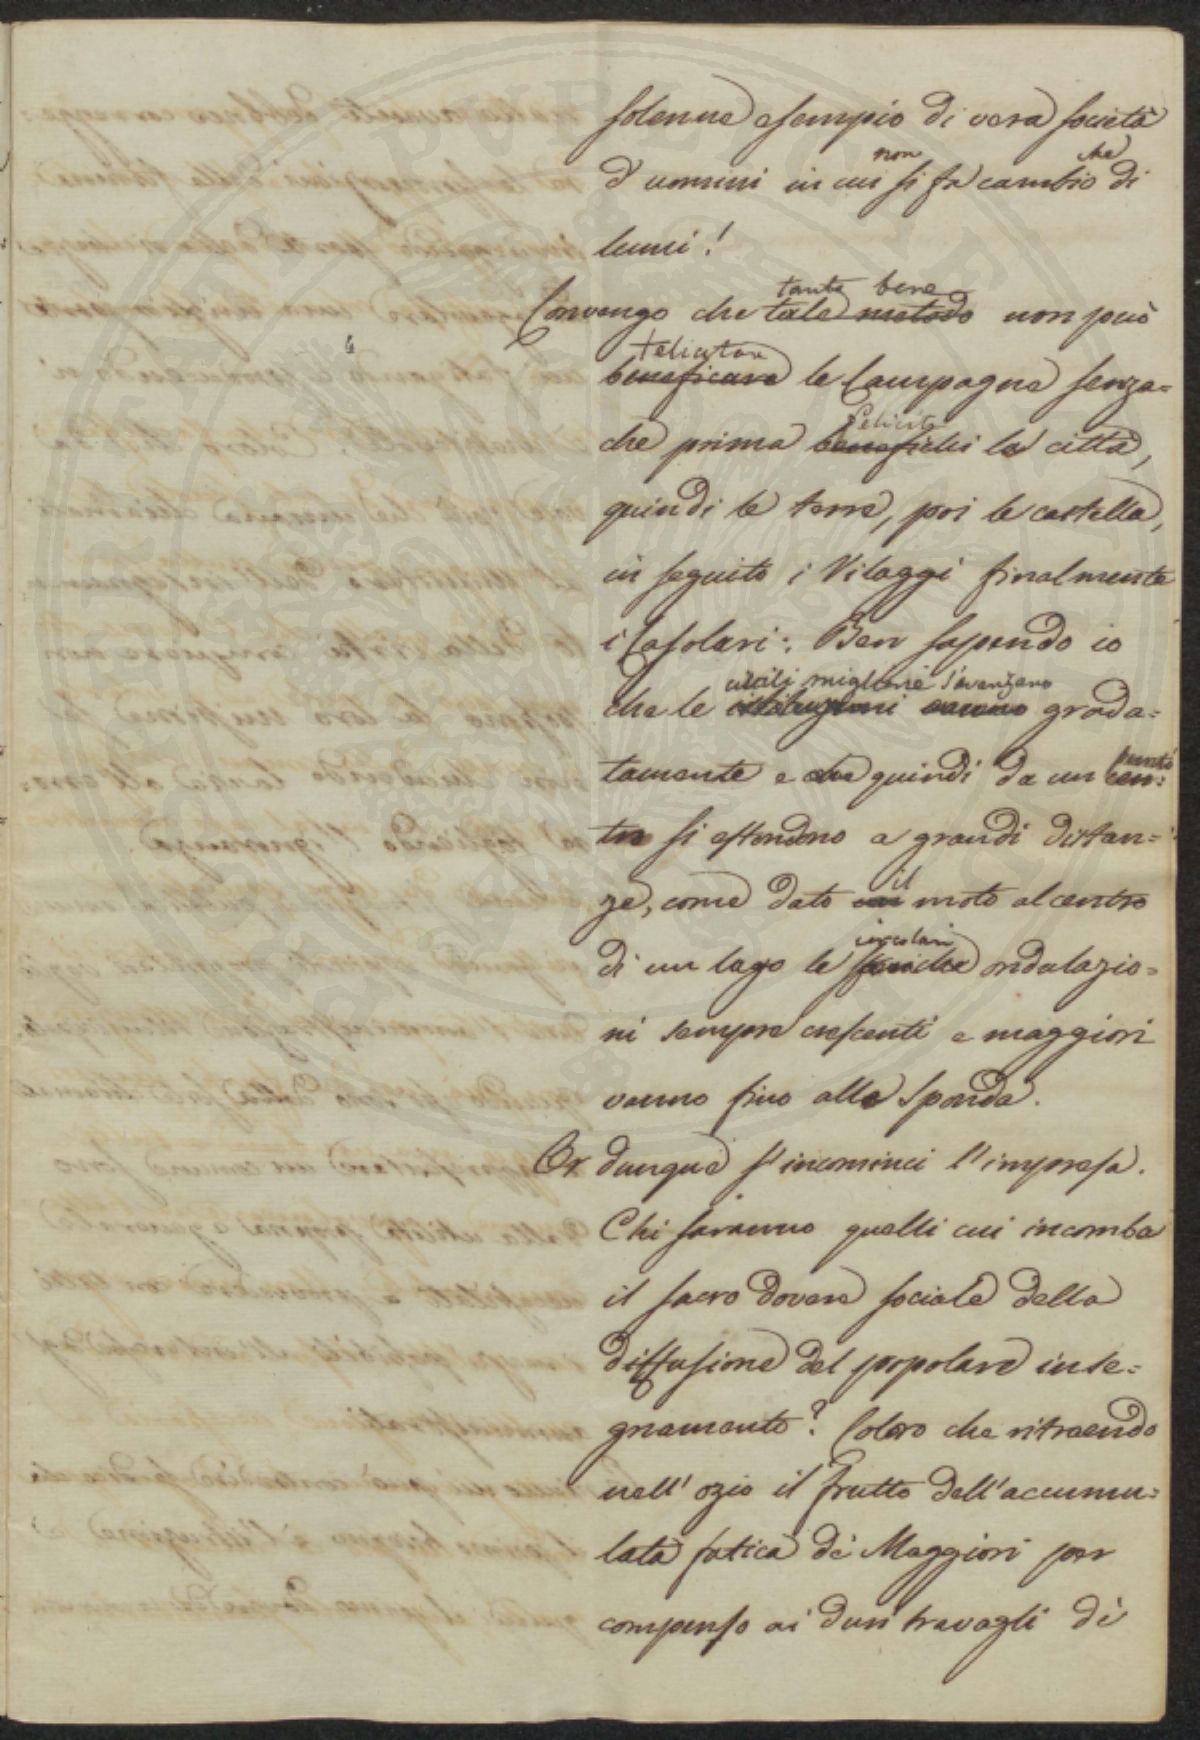 solenne esempio di vera società
non che
d'uomini in cui si fa cambio di
lumi!
tanto bene
Convengo che tale metodo non può
felicitare
beneficare le Campagne senza=
felicita
che prima benefichi la città,
quindi le terre, poi le castella,
in seguito i Vilaggi finalmente
i Casolari: Ben sapendo io
civili migliorie s'avanzano
che le istituzioni vanno grada=
punto
tamente e che quindi da un cen=
tro si estendono a grandi distan=
il
ze, come dato un moto al centro
circolari
di un lago le ondulazio=
ni sempre crescenti e maggiori
vanno fino alla sponda.
Or dunque s'incominci l'impresa.
Chi saranno quelli cui incomba
il sacro dovere sociale della
diffusione del popolare inse=
gnamento? Coloro che ritraendo
nell'ozio il frutto dell'accumu=
lata fatica de' Maggiori per
compenso ai duri travagli di